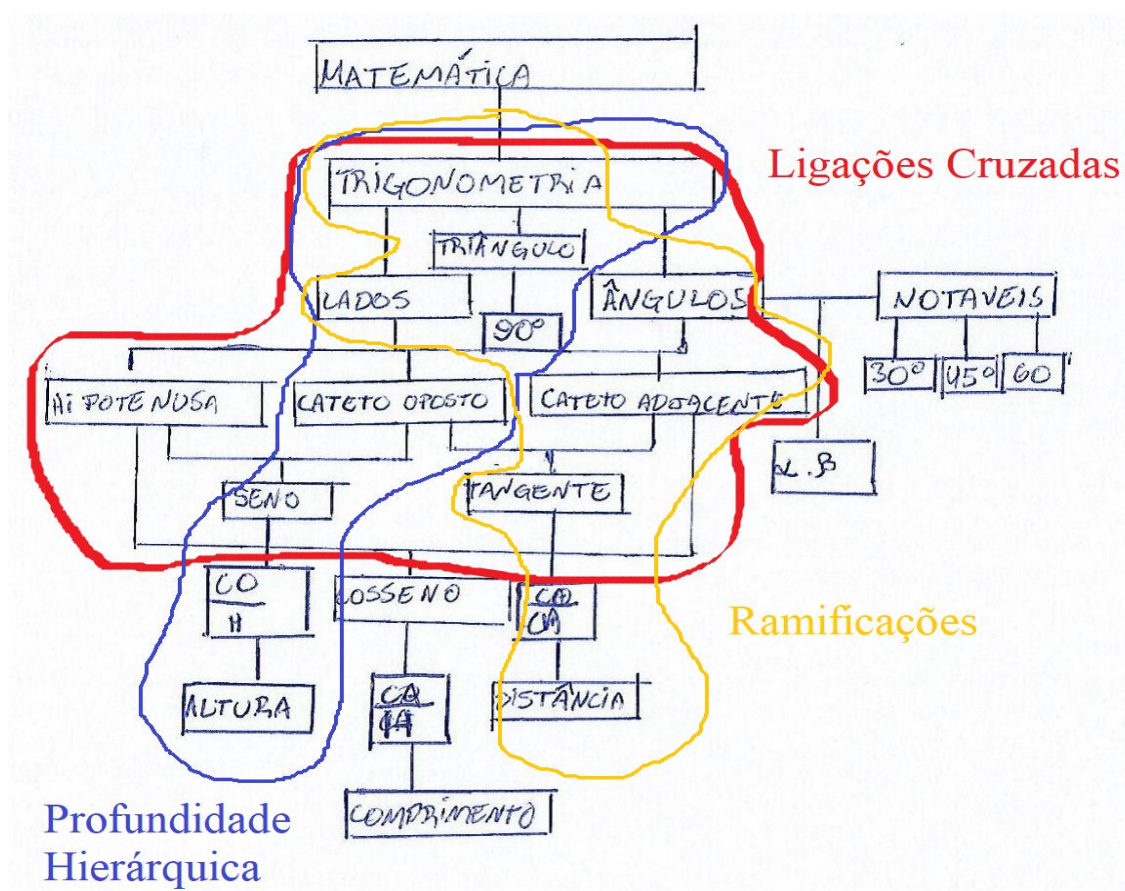 MATEMÁTICA
Ligações Cruzadas
TRIGONOMETRIA
TRIÂNGULO
LADOS
ÂNGULOS
NOTAVEIS
90º
30º
45º
60
HIPOTENUSA
CATETO OPOSTO
CATETO ADJACENTE
SENO
TANGENTE
CO
H
COSSENO
CA
Ramificações
ALTURA
DISTÂNCIA
COMPRIMENTO
Profundidade
Hierárquica